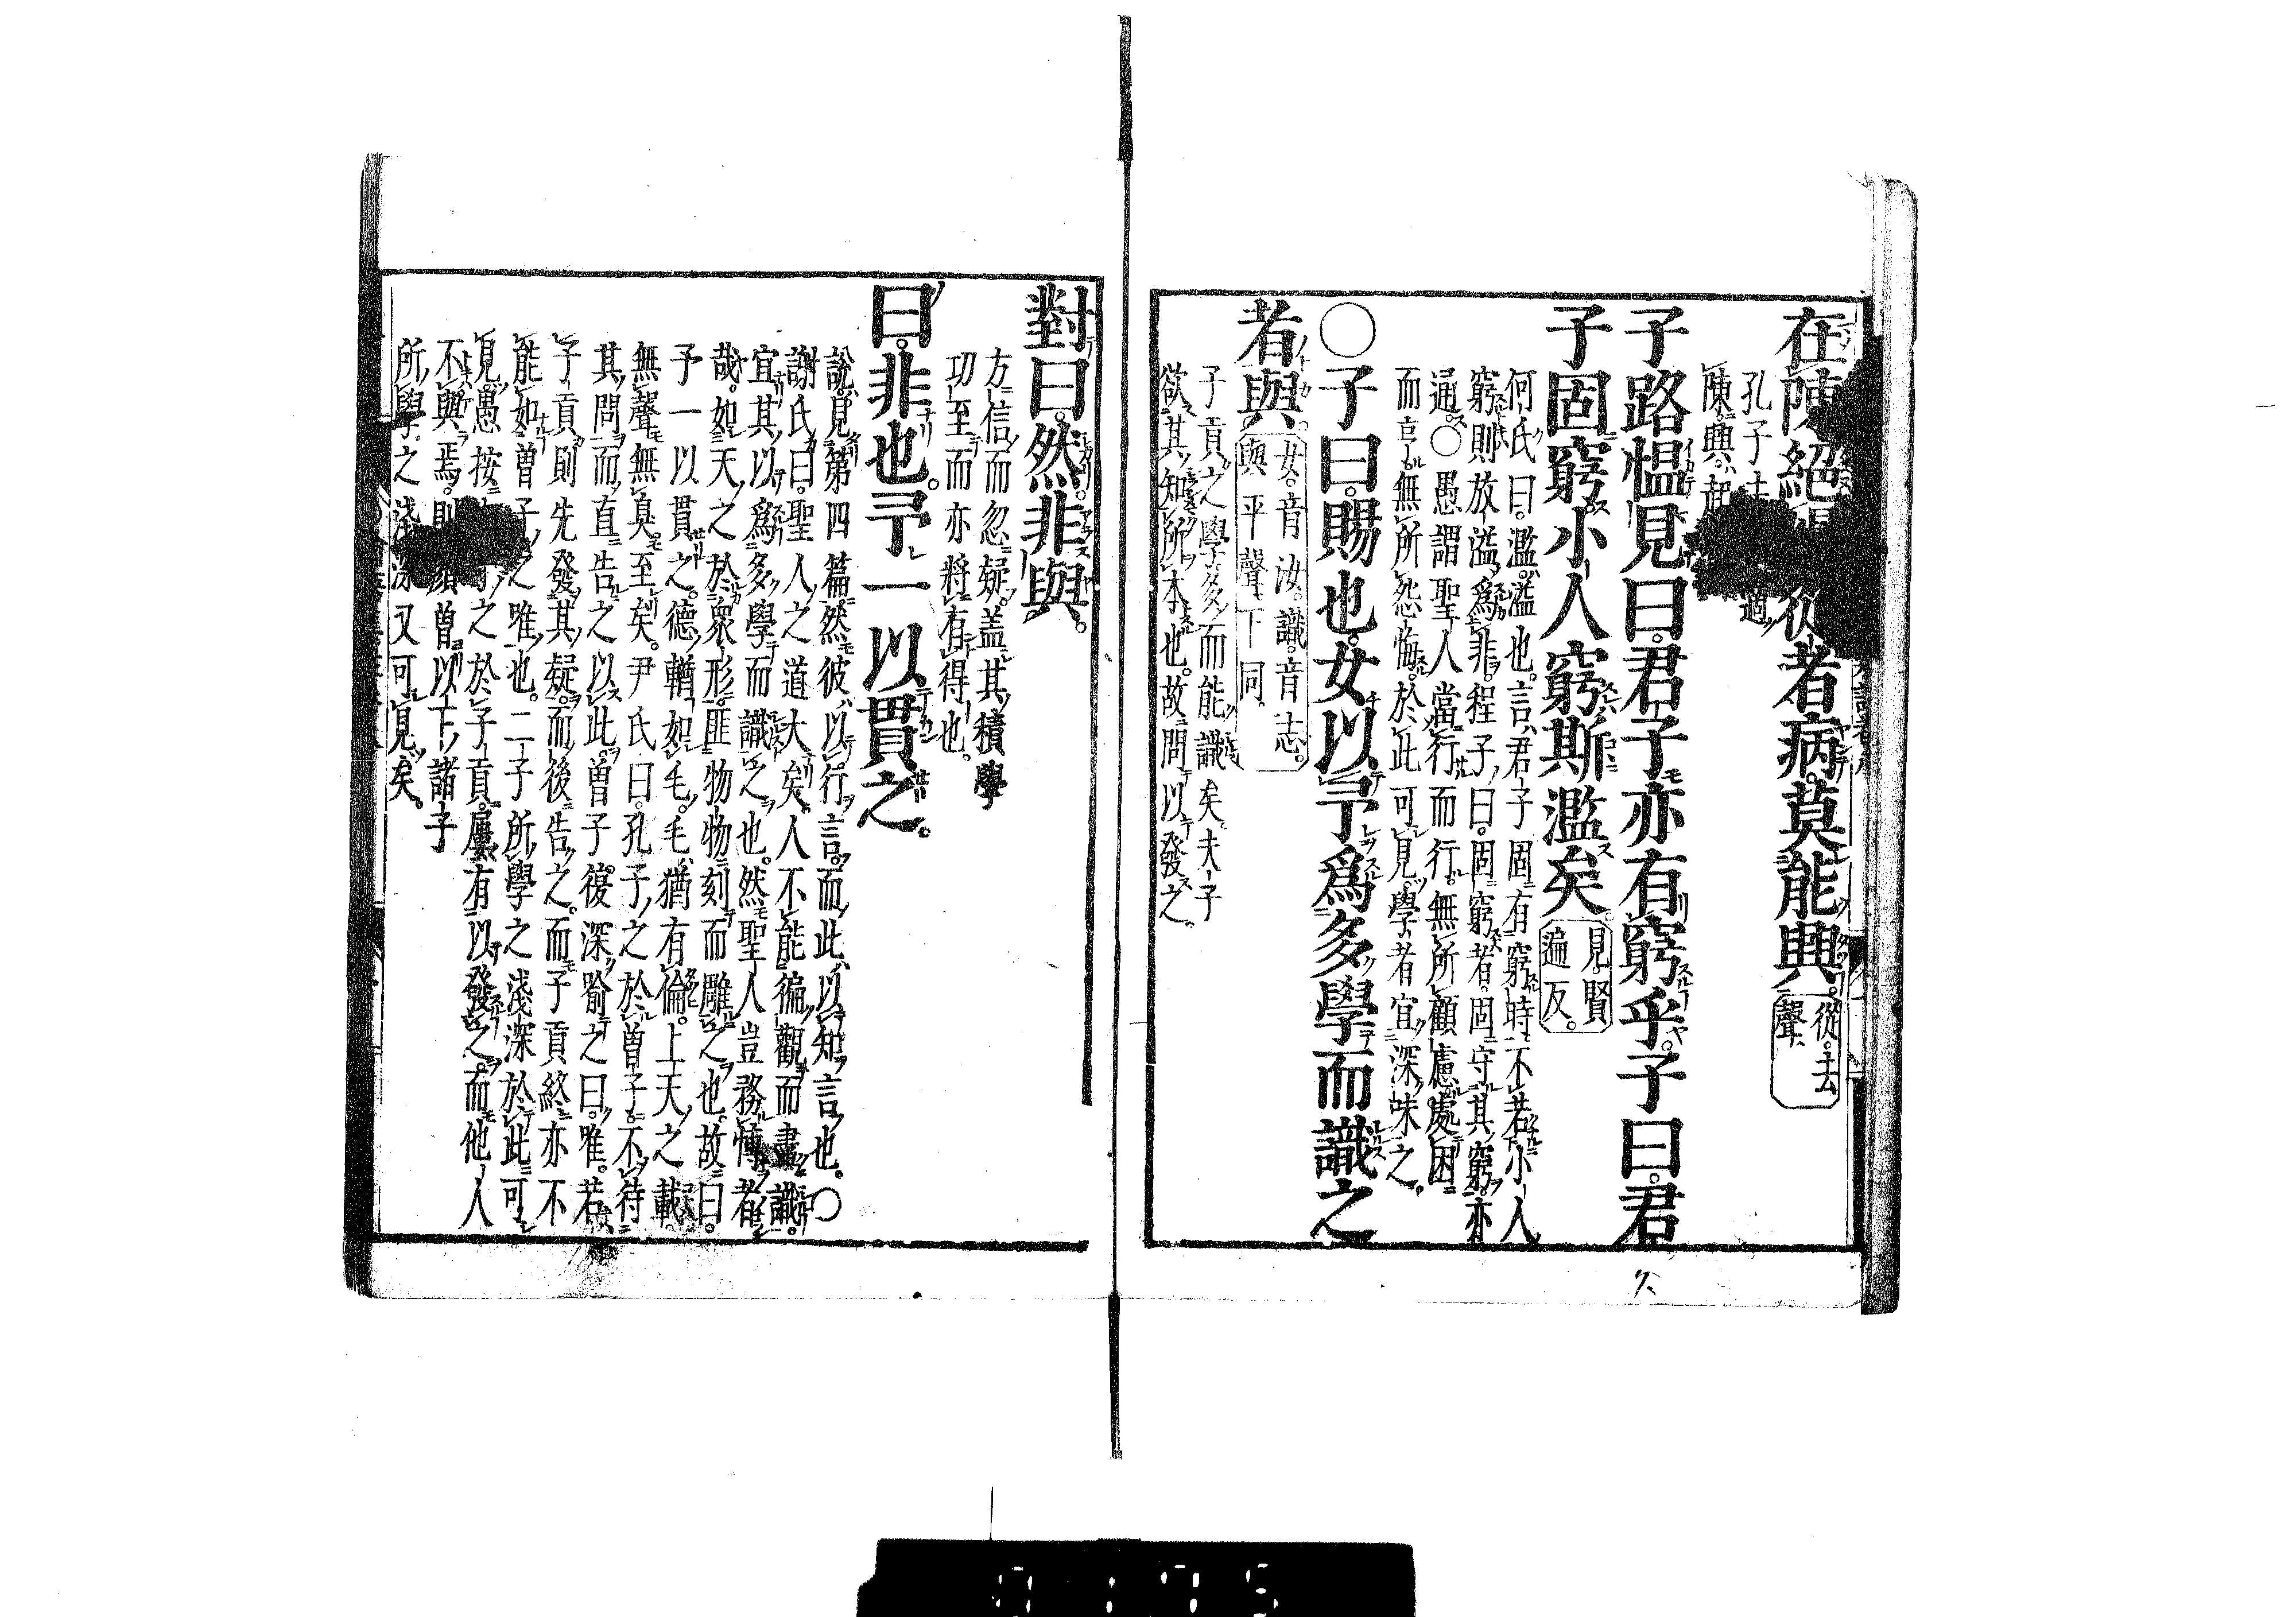 在陳絕從者病。莫能興。從。去聲
孔子去適
陳興。起
子路慍見曰。君子亦有窮乎。子曰。君
子固窮。小人窮斯濫矣。見。賢遍反。
何氏曰。濫。溢也。言君子固有窮時。不若小人
窮則放溢爲非。程子曰。固窮者。固守其窮。亦
通。○愚謂聖人當行而行。無所顧慮。處困
而亨。無所怨悔。於此可見。學者宜深味之。
○子曰。賜也。女以予爲多學而識之
者與。女。音汝。識。音志。與平聲。下同。
子貢之學。多而能識矣。夫子
欲其知所本也。故問以發之。
對曰。然。非與。
方信而忽疑。蓋其積學
功至而亦將有得也。
曰。非也。予一以貫之。
說見第四篇。然彼以行言。而此以知言也。○
謝氏曰。聖人之道大矣。人不能徧觀而盡識。
宜其以爲多學而識之也。然聖人豈務博者
哉。如天之於衆形。匪物物刻而雕之也。故曰。
予一以貫之。德輶如毛。毛猶有倫。上天之載。
無聲無臭。至矣。尹氏曰。孔子之於曾子。不待
其問而直告之以此。曾子復深喻之曰。唯。若
子貢則先發其疑。而後告之。而子貢終亦不
能如曾子之唯也。二子所學之淺深。於此可
見。愚按之於子貢。屢有以發之。而他人
不與焉。則顏曾以下諸子
所學之淺深又可見矣。
9175